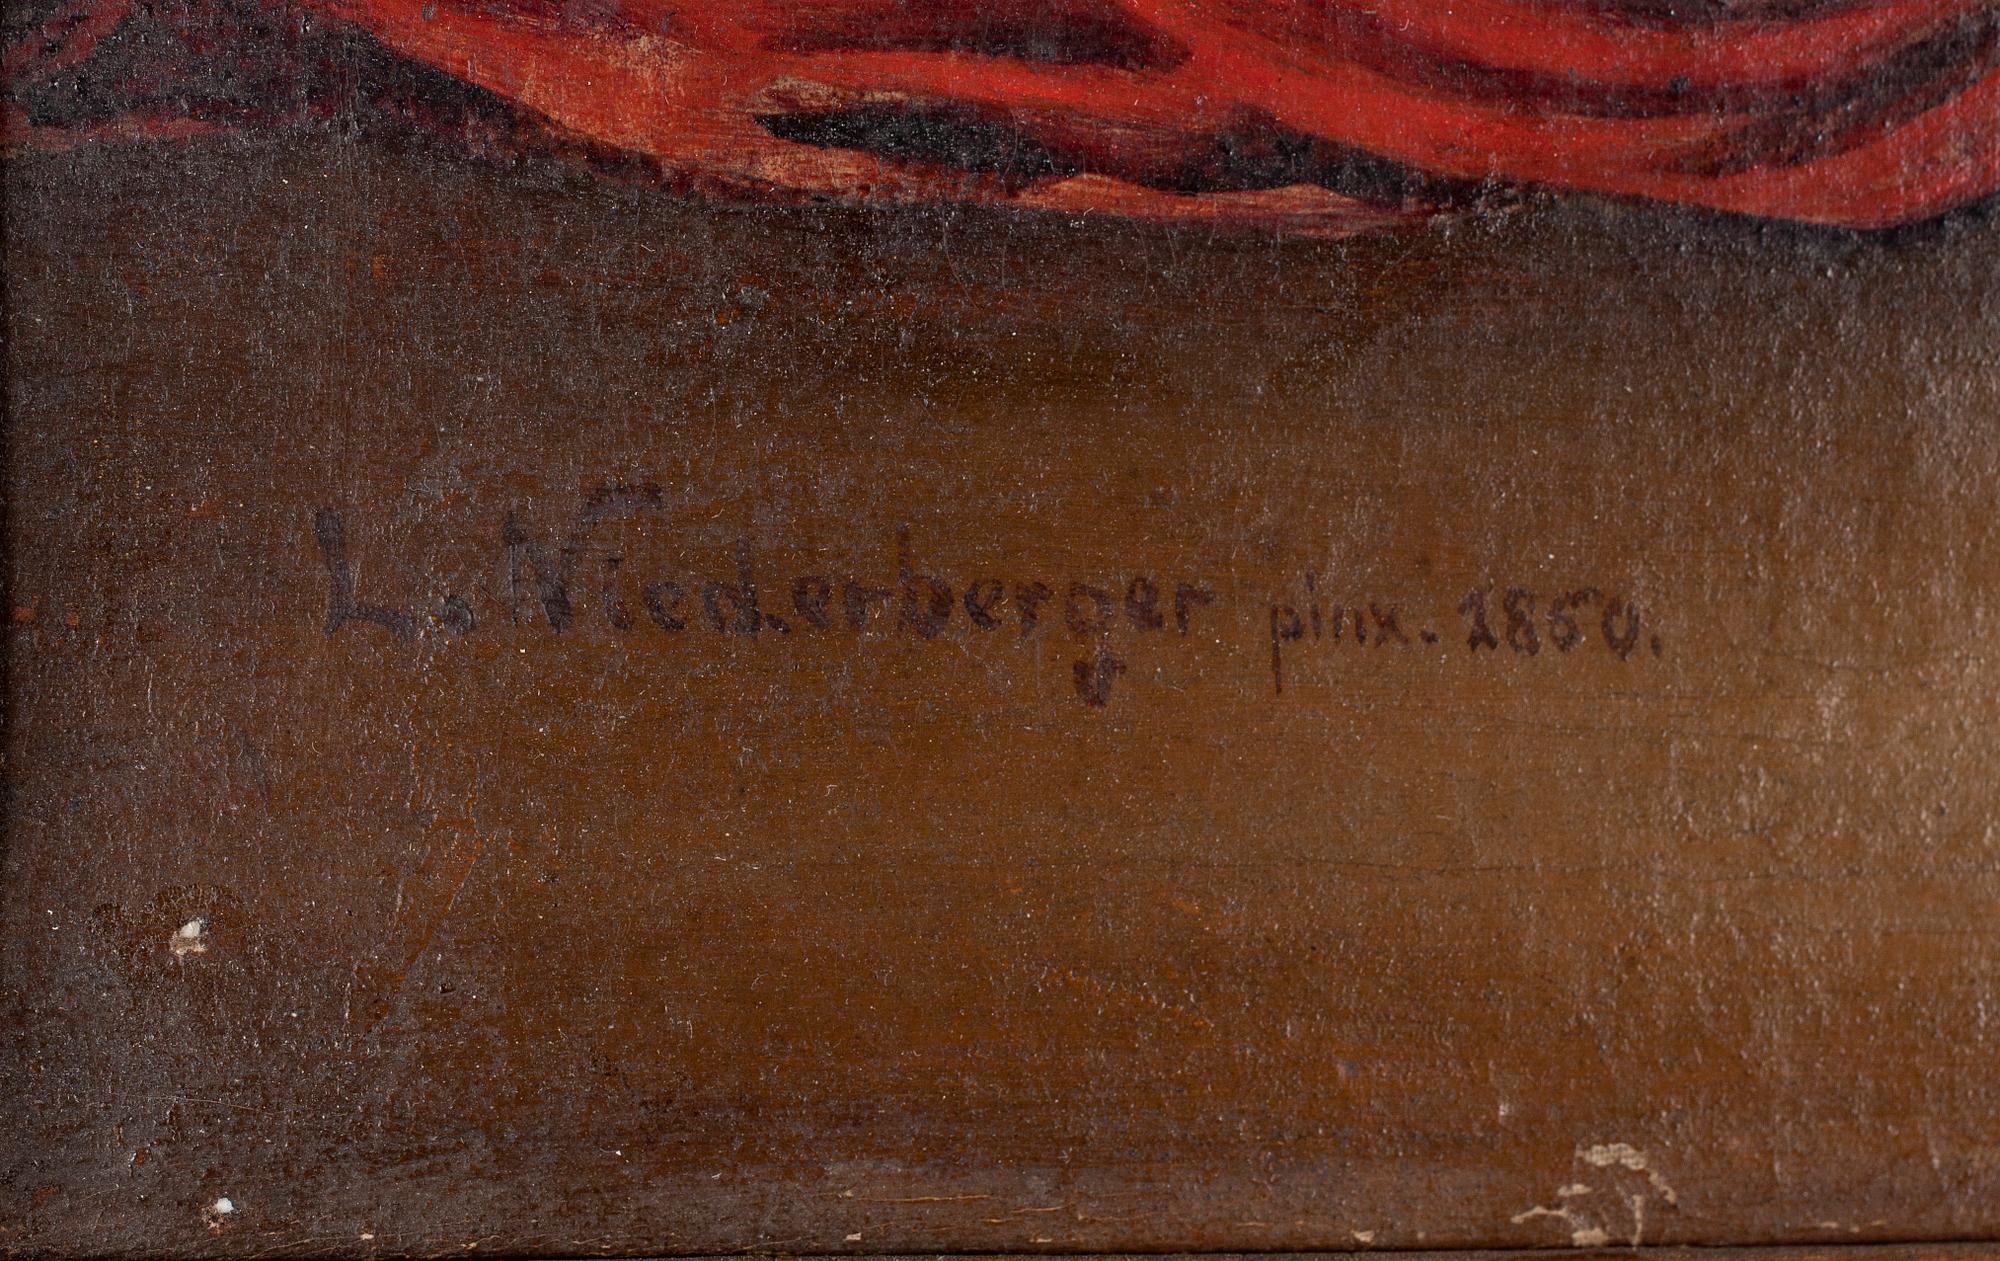 L. Niederberger pinx. 1850.